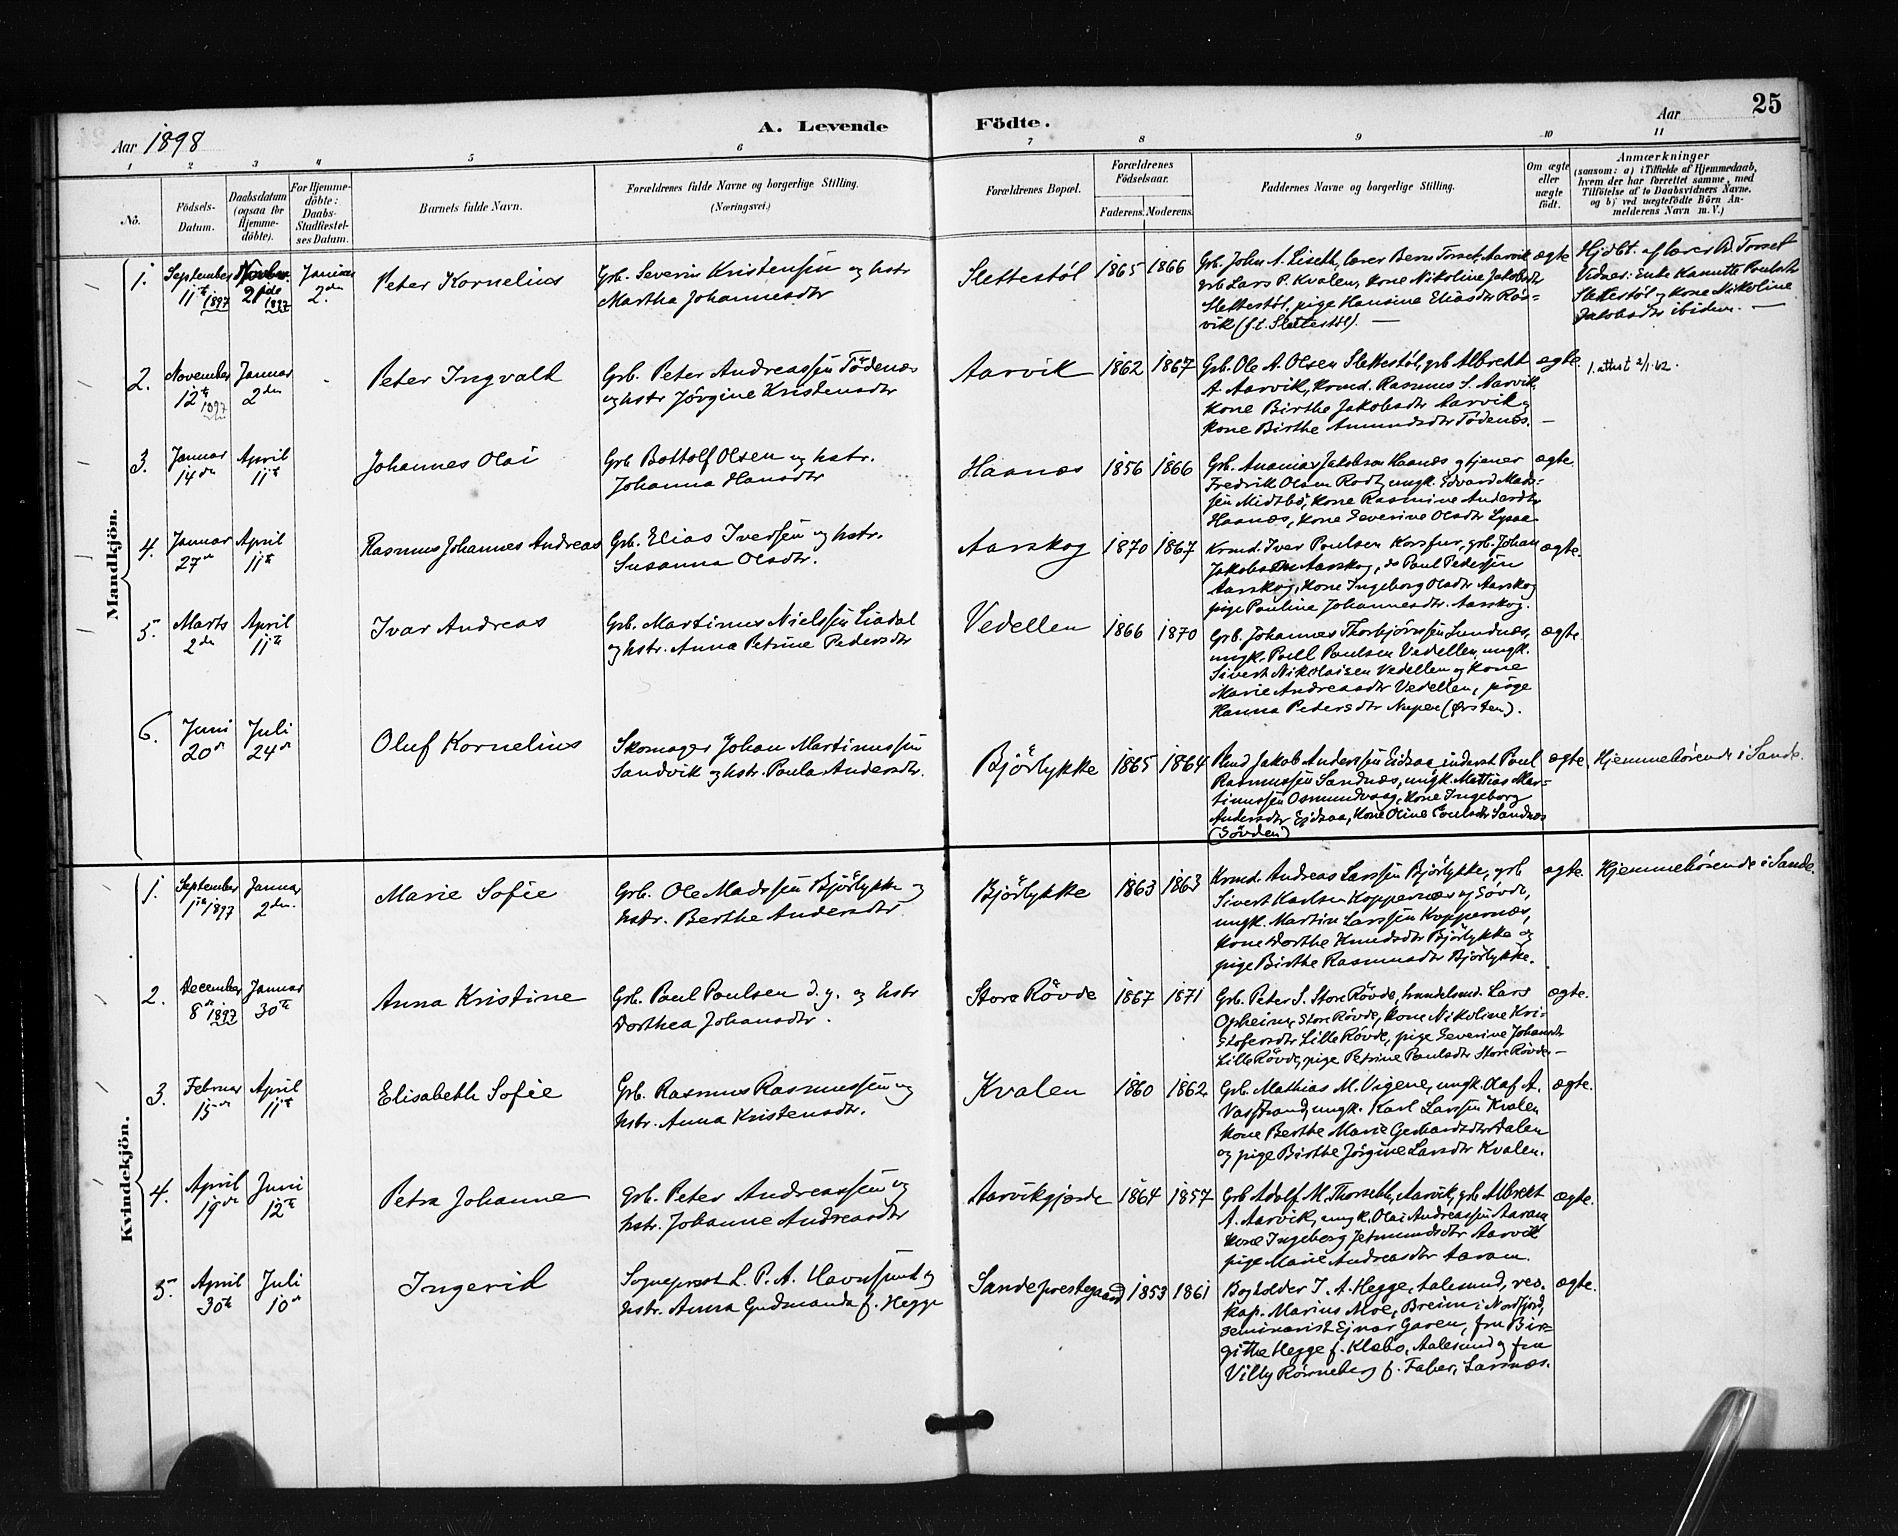 Aar 1898
A. Levende Födte.
Aar
25
1 2 3 4 5 6 7 8 9 10 11
No.
Födsels-Datum.
Daabsdatum (ogsaa for Hjemme-döbte).
For Hjemme-döbte: Daabs-Stadfæstel-ses Datum.
Barnets fulde Navn.
Forældrenes fulde Navne og borgerlige Stilling.
(Næringsvei.)
Forældrenes Bopæl.
Forældrenes Födselsaar.
Faderens. Moderens.
Faddernes Navne og borgerlige Stilling.
Om ægte eller uægte födt.
Anmærkninger
(saasom: a) i Tilfælde af Hjemmedaab,
hvem der har forrettet samme, med
Tilföielse af to Daabsvidners Navne.
og b) ved uægtefödte Börn An-
melderens Navn m. V.)
Mandkjön.
1. September 11te 1897
21de 1897
Januar 2den
Peter Kornelius
Grb. Severin Kristensen og hstr
Martha Johannesdtr
Slettestöl 1865 1866
Grb. John A. Liseth, lærer Bern Torset, Aarvik
grb Lars P. Kvalen, kone Nikoline Jakobsdtr
Slettestöl, pige Hansine Eliasdtr Røs-
vik (f. i. Slettestöl). —
ægte
Hjdbt. af lærer B. Torset
Vidner: Enke Paulsdtr
Slettestöl og kone Nikoline
Jakobsdtr ibidem. —
2. November 12te 1897
Januar 2den
Peter Ingvald
Grb. Peter Andreassen Tödenæs
og hstr Jörgine Kristensdtr
Aarvik 1862 1867
Grb. Ole A. Olsen Slettestöl, grb Albrekt
A. Aarvik, krmd. Rasmus S. Aarvik,
kone Birthe Jakobsdtr Aarvik og
kone Birthe Amundsdtr Tödenæs. —
ægte
1. attest 2/1-62.
3. Januar 14de
April 11te
Johannes Olai
Grb Bottolf Olsen og hstr.
Johanna Hansdtr
Haanæs 1856 1866
Grb. Ananias Jakobsen Haanæs og tjener
Fredrik Olsen, ungk. Edvard Mad-
sen Midtbö, kone Rasmine Andersdtr
Haanæs, kone Severine Olsdtr
ægte.
4. Januar 27de
April 11te
Rasmus Johannes Andreas
Grb. Elias Iversen og hstr.
Susanna Olsdtr.
Aarskog 1870 1867
Krmd. Iver Poulsen, grb. Johan
Jakobsen Aarskog, do Paul Pedersen
Aarskog, kone Ingeborg Olsdtr Aarskog
pige Pauline Johannesdtr. Aarskog.
ægte.
5. Marts 2den
April 11te
Ivar Andreas
Grb. Martinus Nielssen Liadal
og hstr. Anna Petrine Pedersdtr
Vedellen 1866 1870
Grb. Johannes Thorbjørnsen Lundnæs,
ungk. Poul Poulsen Vedellen, ungk.
Sivert Nikolaisen Vedellen og kone
Marie Andreasdtr Vedellen, pige
Hanna Pedersdtr Nupen (Ørsten).
ægte.
6. Juni 20de
Juli 24de
Oluf Kornelius
Skomager Johan Martinussen
Sandvik og hstr. Paula Andersdtr.
Björlykke 1865 1864
Jakob Anderssen Eidsaa, inderst Poul
Rasmussen Sandnæs, ungk. Mattias Mar-
tinussen Osmundvaag, kone Ingeborg
Andersdtr Eidsaa, kone Oline Poulsdtr Sandnæs
(Sövden)
ægte.
Hjemmehörende i Sande.
Kvindekjön.
1. September 1ste 1897
Januar 2den
Marie Sofie
Grb. Ole Madssen Björlykke og
hstr. Berthe Andersdtr
Björlykke 1863 1863
Krmd. Andreas Larssen Björlykke, grb
Sivert Karlsen Koppernæs af Sövde,
ungk. Martin Larssen Koppernæs,
kone Dorthe Knudsdtr Björlykke og
pige Birthe Rasmusdtr Björlykke.
ægte.
Hjemmehörende i Sande.
2. December 8de 1897
Januar 30te
Anna Kristine
Grb. Paul Poulsen d.y. og hstr
Dorthea Johansdtr.
Store Rövde 1867 1871
Grb. Peter S. Store Rövde, handelsmd. Lars
Opheim, Store Rövde, kone Nikoline Kri-
stofersdtr Lille Rövde, pige Severine Johansdtr
Lille Rövde, pige Petrine Paulsdtr Store Rövde. —
ægte.
3. Februar 15de
April 11te
Elisabeth Sofie
Grb. Rasmus Rasmussen og
hstr. Anna Kristensdtr.
Kvalen 1860 1862
Grb. Mathias M. Vigene, ungk. Olaf A.
Vasstrand, ungk. Karl Larssen Kvalen
kone Berthe Marie Gerhardsdtr Dalen
og pige Birthe Jörgine Larsdtr Kvalen.
ægte.
4. April 19de
Juni 12te
Petra Johanne
Grb. Peter Andreassen og
hstr. Johanne Andreasdtr
Aarvikgjærde 1864 1857
Grb Adolf M. Thorseth, Aarvik, grb Albrekt
A. Aarvik, ungk. Olai Andreassen Aaram
kone Ingeborg Jetmundsdtr Aarvik
pige Marie Andreasdtr Aaram.
ægte.
5. April 30te
Juli 10de
Ingerid
Sogneprest L. P. A. Havnsund og
hstr. Anna Gudmanda f. Hegge
Sande prestegaard 1853 1861
Bogholder I. A. Hegge, Aalesund, res.
kap. Marius Moe, Breim i Nordfjord,
seminarist Ejnar Garen, fru Bir-
githe Hegge f. Klæbo, Aalesund og fru
Villy Rönneberg f. Faber, Larsnæs.
ægte.